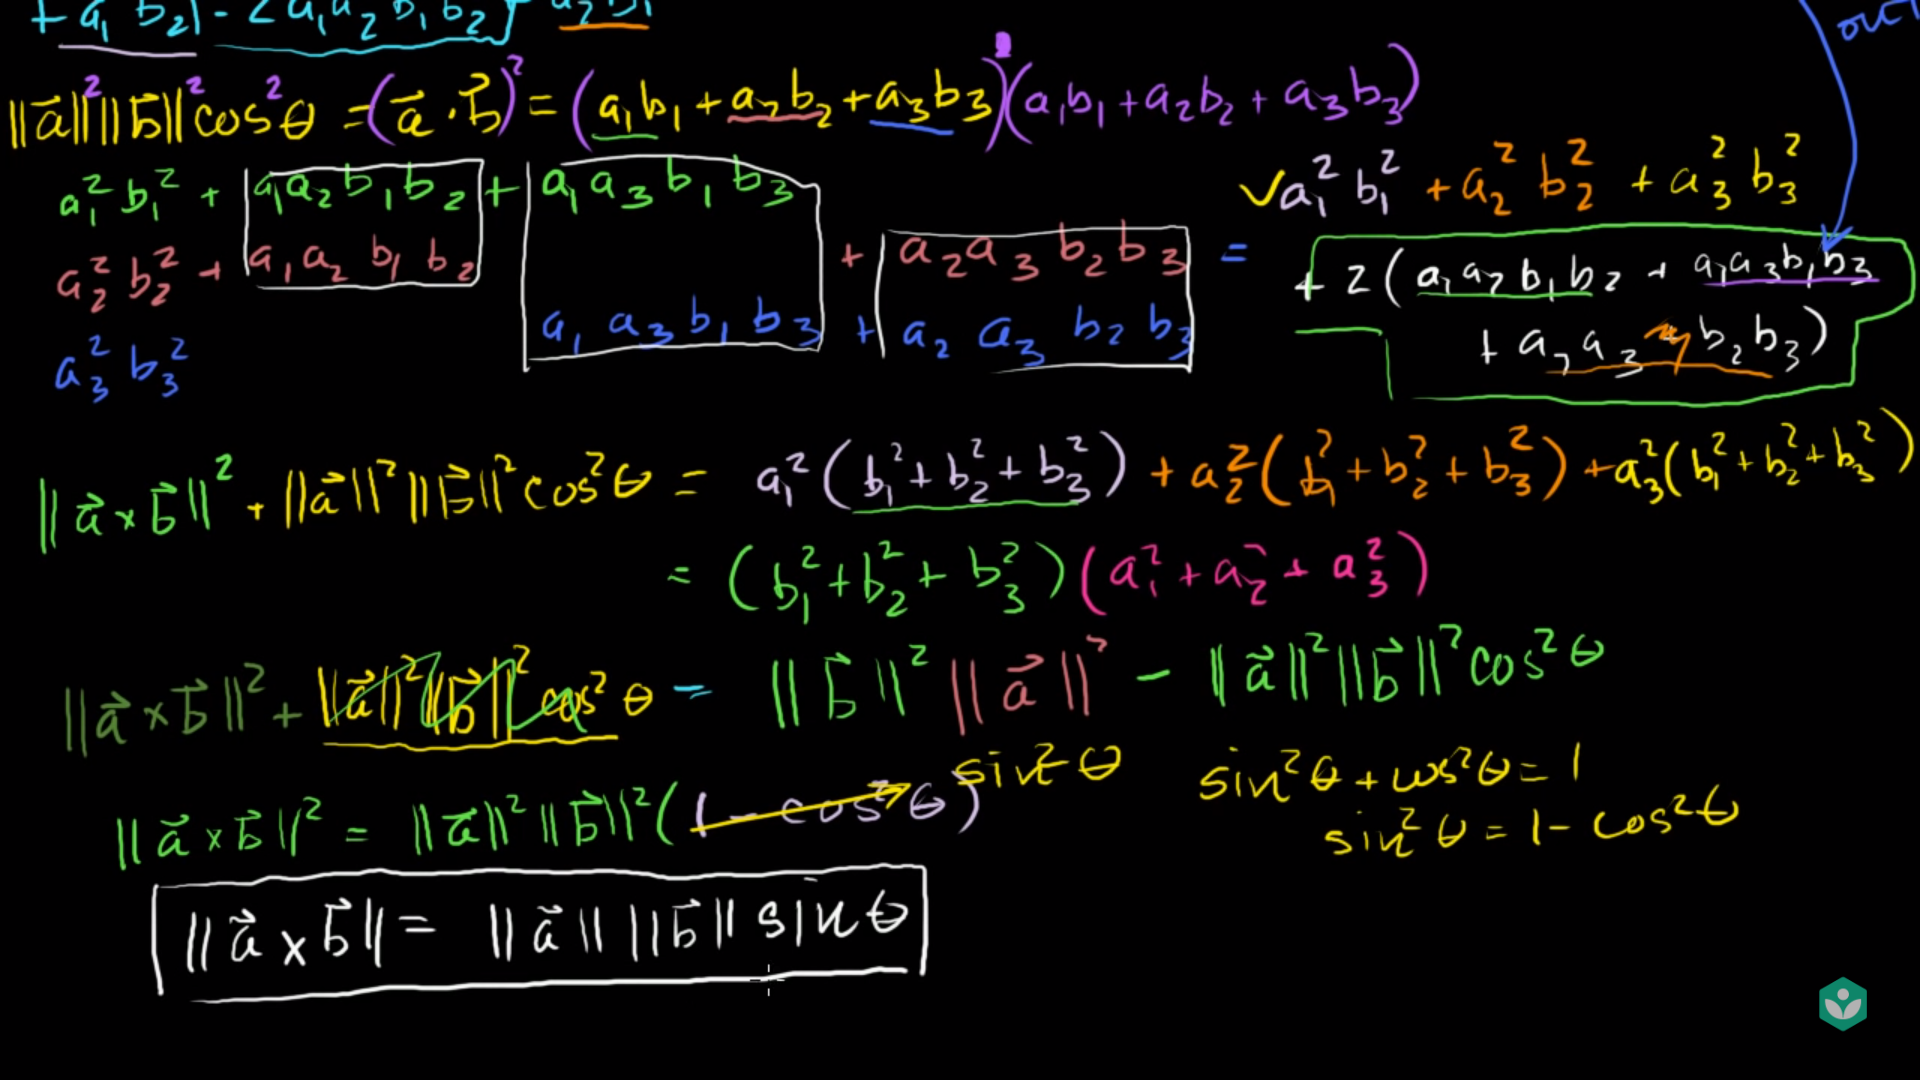 + a₁ b₂] - 2 a₁a₂ b₁ b₂] a₂ b₁
out
||a⃗||² ||b⃗||² cos²θ = (a⃗ · b⃗)² = (a₁b₁ + a₂b₂ + a₃b₃)(a₁b₁ + a₂b₂ + a₃b₃)
a₁² b₁² + a₁a₂b₁b₂ + a₁a₃b₁b₃
a₂² b₂² + a₁a₂b₁b₂ + a₂a₃b₂b₃
a₃² b₃² a₁a₃b₁b₃ + a₂a₃b₂b₃
= a₁² b₁² + a₂² b₂² + a₃² b₃²
+ 2(a₁a₂b₁b₂ + a₁a₃b₁b₃
+ a₂a₃b₂b₃)
||a⃗ × b⃗||² + ||a⃗||² ||b⃗||² cos²θ = a₁²(b₁² + b₂² + b₃²) + a₂²(b₁² + b₂² + b₃²) + a₃²(b₁² + b₂² + b₃²)
= (b₁² + b₂² + b₃²)(a₁² + a₂² + a₃²)
||a⃗ × b⃗||² + ||a⃗||² ||b⃗||² cos²θ = ||b⃗||² ||a⃗||² - ||a⃗||² ||b⃗||² cos²θ
||a⃗ × b⃗||² = ||a⃗||² ||b⃗||² (1 - cos²θ) sin²θ
sin²θ + cos²θ = 1
sin²θ = 1 - cos²θ
||a⃗ × b⃗|| = ||a⃗|| ||b⃗|| sinθ